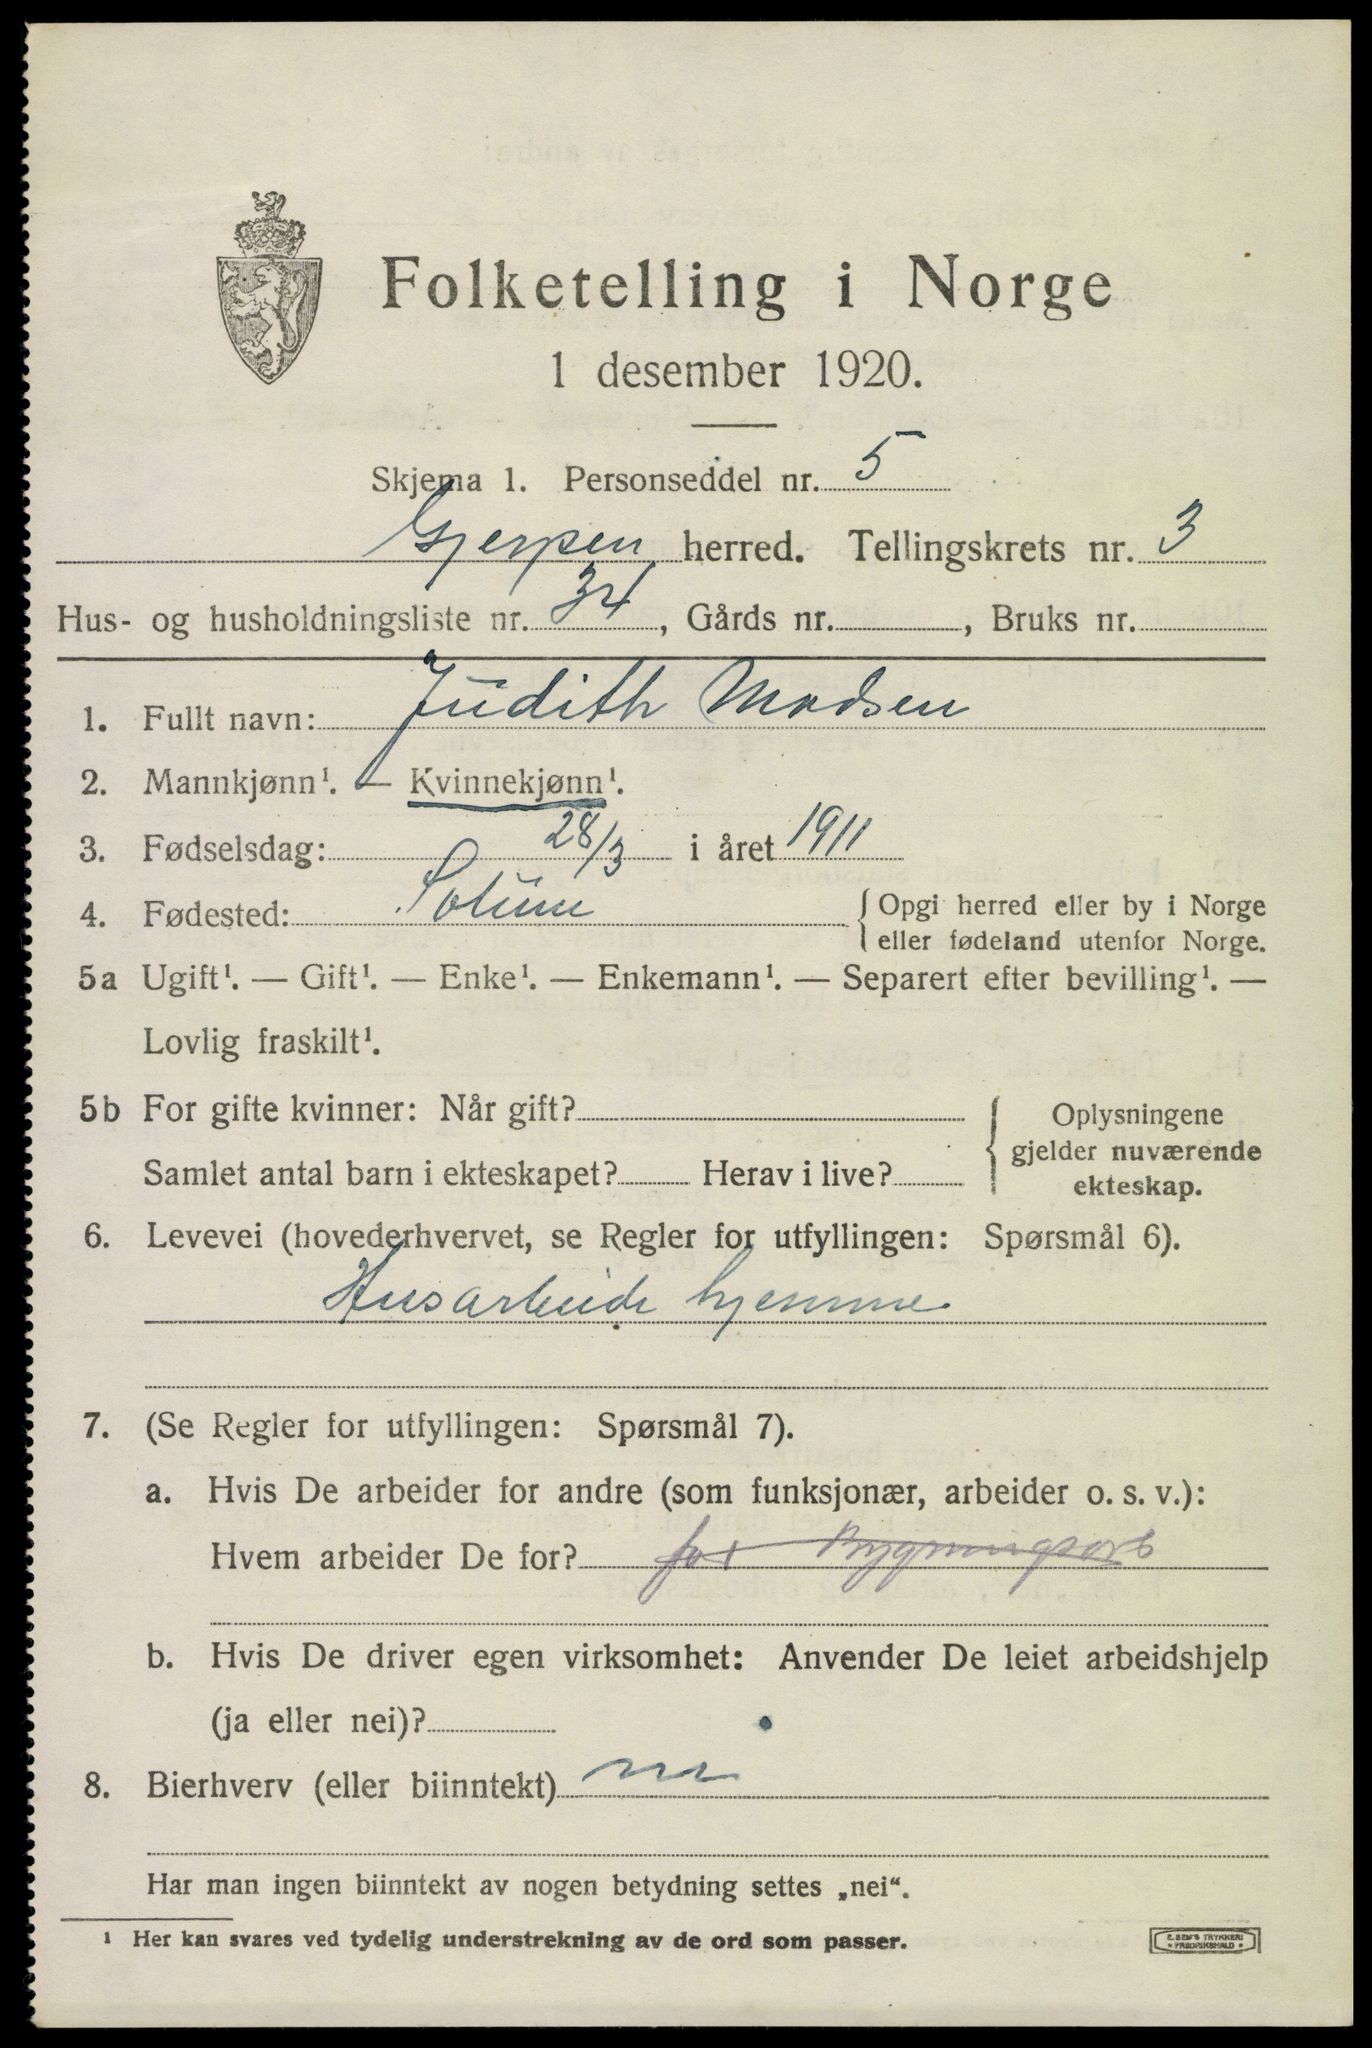 Folketelling i Norge
1 desember 1920.
Skjema 1. Personseddel nr. 5
Gjerpen herred. Tellingskrets nr. 3
Hus- og husholdningsliste nr. 34, Gårds nr. , Bruks nr.
1. Fullt navn: Judith Madsen
2. Mannkjønn¹. — Kvinnekjønn¹.
3. Fødselsdag: 28/3 i året 1911
4. Fødested: Solum { Opgi herred eller by i Norge
eller fødeland utenfor Norge.
5a Ugift¹. — Gift¹. — Enke¹. — Enkemann¹. — Separert efter bevilling¹. —
Lovlig fraskilt¹.
5b For gifte kvinner: Når gift? { Oplysningene
gjelder nuværende
Samlet antal barn i ekteskapet? Herav i live? ekteskap.
6. Levevei (hovederhvervet, se Regler for utfyllingen: Spørsmål 6).
Husarbeide hjemme
7. (Se Regler for utfyllingen: Spørsmål 7).
a. Hvis De arbeider for andre (som funksjonær, arbeider o. s. v.):
Hvem arbeider De for?
b. Hvis De driver egen virksomhet: Anvender De leiet arbeidshjelp
(ja eller nei)?
8. Bierhverv (eller biinntekt) nei
Har man ingen biinntekt av nogen betydning settes „nei“.
¹ Her kan svares ved tydelig understrekning av de ord som passer.
E. SEM'S TRYKKERI
• FREDRIKSHALD •